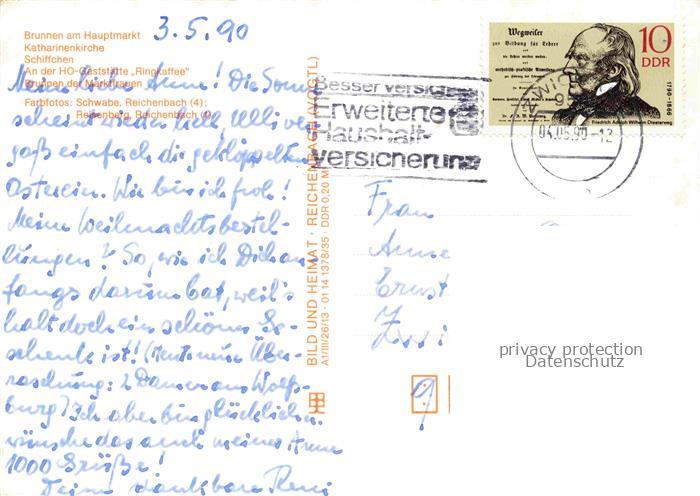 Brunnen am Hauptmarkt
Katharinenkirche
Schiffchen
An der HO-Gaststätte „Ringkaffee"
Brunnen der Marktfrauen
Farbfotos: Schwabe, Reichenbach (4);
Reisenberg, Reichenbach (1)
3.5.90
Meine liebe Anne! Die Sonne
scheint wieder hell, Ulli ver-
gaß einfach die geklöppelten
Ostereier. Wie bin ich froh!
Meine Weihnachtsbestel-
lungen? So, wie ich Dich an-
fangs darum bat, weil's
halt doch ein schönes Ge-
schenk ist! (Heute neue Über-
raschung: 2 Damen aus Wolfs-
burg) Ich aber bin glücklich u.
wünsche das auch meiner Anne
1000 Grüße!
Deine dankbare Reni
BILD UND HEIMAT · REICHENBACH (VOGTL)
A1/III/26/13 · 01 14 1378/35 · DDR 0,20 M
Besser versichert
Erweiterte
Haushalt-
versicherung
04.05.90-12
Wegweiser
zur Bildung für Lehrer
10
DDR
1790-1866
Friedrich Adolph Wilhelm Diesterweg
Frau
Anne
Ernst
9
privacy protection
Datenschutz